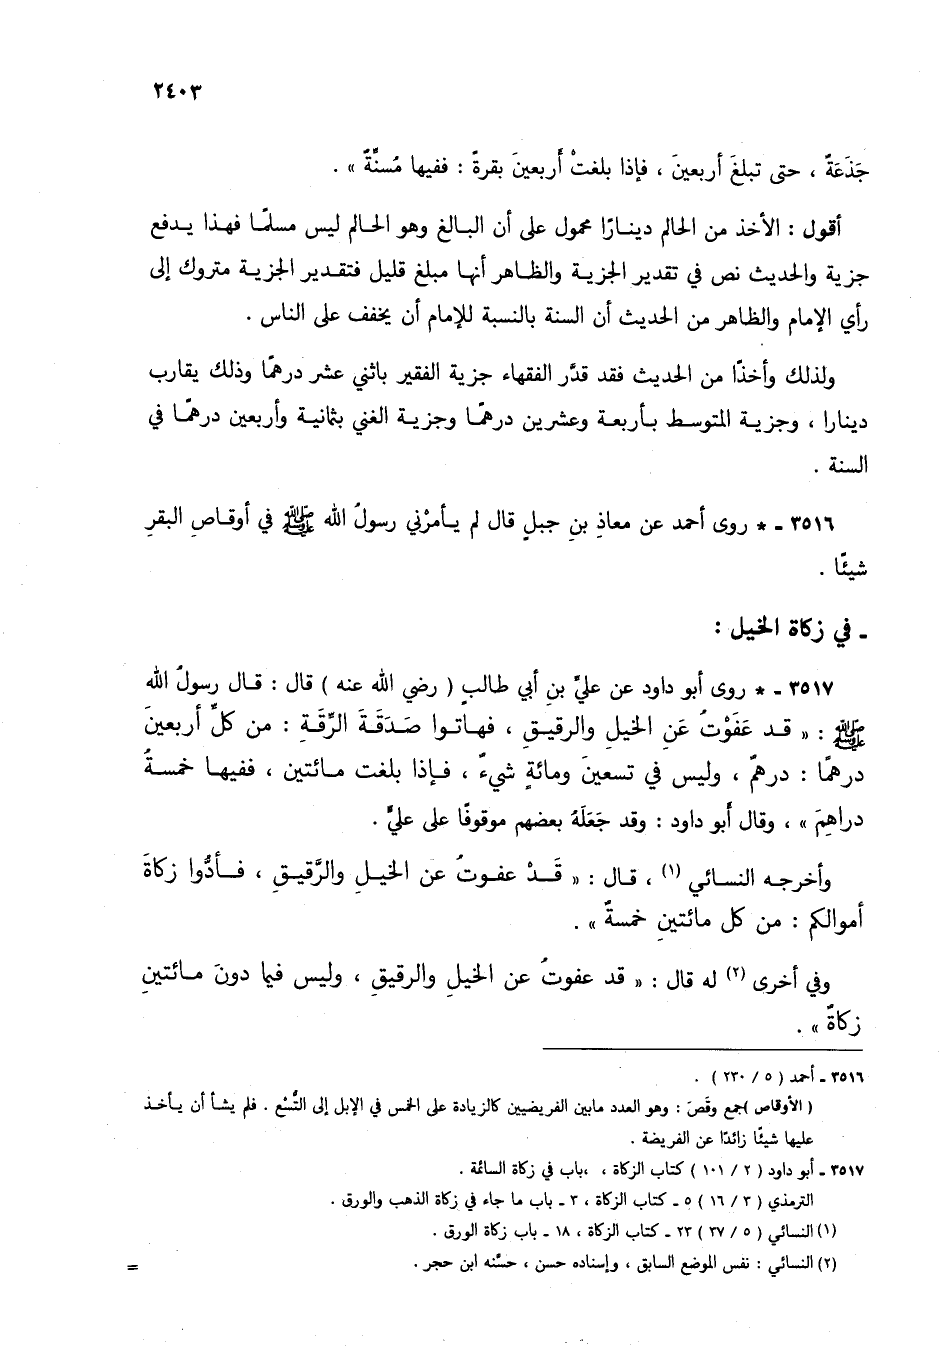 ٢٤٠٣
جَذَعَةٌ ، حتى تبلغَ أربعينَ ، فإذا بلغتْ أربعينَ بقرةً : ففيها مُسنَّةٌ » .
أقول : الأخذ من الحالم دينارًا محمول على أن البالغ وهو الحالم ليس مسلمًا فهذا يدفع
جزية والحديث نص في تقدير الجزية والظاهر أنها مبلغ قليل فتقدير الجزية متروك إلى
رأي الإمام والظاهر من الحديث أن السنة بالنسبة للإمام أن يخفف على الناس .
ولذلك وأخذًا من الحديث فقد قدَّر الفقهاء جزية الفقير باثني عشر درهمًا وذلك يقارب
دينارا ، وجزية المتوسط بأربعة وعشرين درهمًا وجزية الغني بثمانية وأربعين درهمًا في
السنة .
٣٥١٦ ـ * روى أحمد عن معاذِ بنِ جبلٍ قال لم يأمرْني رسولُ الله ﷺ في أوقاصِ البقرِ
شيئًا .
ـ في زكاة الخيل :
٣٥١٧ ـ * روى أبو داود عن عليِّ بنِ أبي طالبٍ ( رضي الله عنه ) قال : قال رسولُ الله
ﷺ : « قد عَفَوْتُ عَنِ الخيلِ والرقيقِ ، فهاتوا صَدَقَةَ الرِّقَةِ : من كلِّ أربعينَ
درهمًا : درهمٌ ، وليس في تسعينَ ومائةٍ شيءٌ ، فإذا بلغت مائتين ، ففيها خمسةُ
دراهِمَ » ، وقال أبو داود : وقد جَعَلَهُ بعضهم موقوفًا على عليٍّ .
وأخرجه النسائي (١) ، قال : « قَدْ عفوتُ عن الخيلِ والرَّقيقِ ، فأدُّوا زكاةَ
أموالكم : من كل مائتينِ خمسةٌ » .
وفي أخرى (٢) له قال : « قد عفوتُ عن الخيلِ والرقيقِ ، وليس فيما دونَ مائتينِ
زكاةٌ » .
٣٥١٦ ـ أحمد ( ٥ / ٢٣٠ ) .
( الأوقاص )جمع وقَصَ : وهو العدد مابين الفريضيين كالزيادة على الخمس في الإبل إلى التِّسْع . فلم يشأ أن يأخذ
عليها شيئًا زائدًا عن الفريضة .
٣٥١٧ ـ أبو داود ( ٢ / ١٠١ ) كتاب الزكاة ، ،باب في زكاة السائمة .
الترمذي ( ٣ / ١٦ ) ٥ ـ كتاب الزكاة ، ٣ ـ باب ما جاء في زكاة الذهب والورق .
(١) النسائي ( ٥ / ٣٧ ) ٢٣ ـ كتاب الزكاة ، ١٨ ـ باب زكاة الورق .
(٢) النسائي : نفس الموضع السابق ، وإسناده حسن ، حسَّنه ابن حجر . =